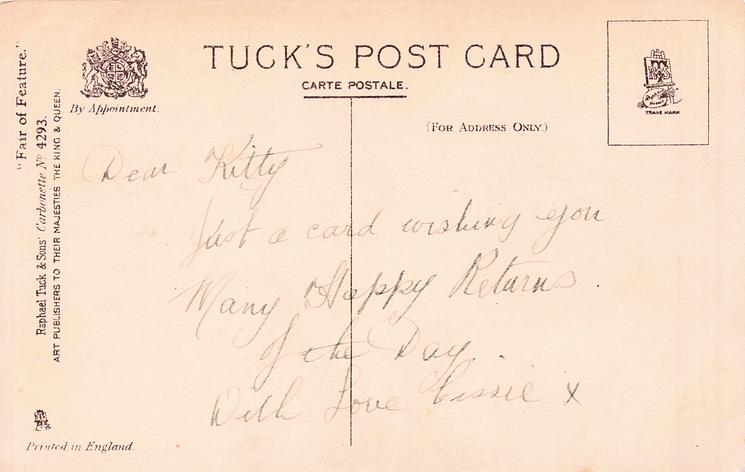 TUCK'S POST CARD
CARTE POSTALE.
By Appointment.
(FOR ADDRESS ONLY.)
TRADE MARK
"Fair of Feature."
Raphael Tuck & Sons' Carbonette No 4293.
ART PUBLISHERS TO THEIR MAJESTIES THE KING & QUEEN.
Dear Kitty
Just a card wishing you
Many Happy Returns.
of the Day.
With Love Cissie x
Printed in England.